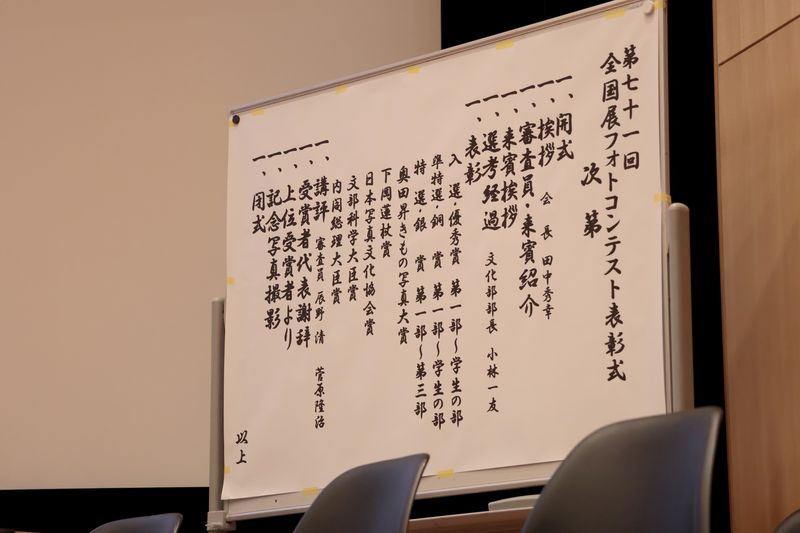 第七十一回
全国展フォトコンテスト表彰式
次第
一、開式
一、挨拶 会長 田中秀幸
一、審査員・来賓紹介
一、来賓挨拶
一、選考経過 文化部部長 小林一友
一、表彰
入選・優秀賞 第一部~学生の部
準特選・銅賞 第一部~学生の部
特選・銀賞 第一部~第三部
奥田昇きもの写真大賞
下岡蓮杖賞
日本写真文化協会賞
文部科学大臣賞
内閣総理大臣賞
一、講評 審査員 辰野清 菅原隆治
一、受賞者代表謝辞
一、上位受賞者より
一、記念写真撮影
一、閉式
以上